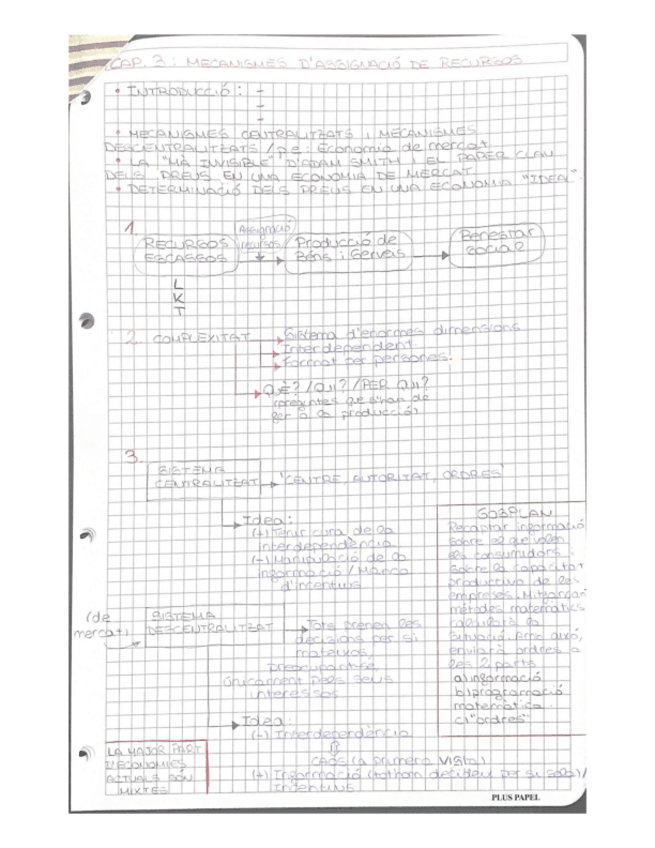 CAP. 3: MECANISMES D'ASSIGNACIÓ DE RECURSOS
• INTRODUCCIÓ: -
-
-
• MECANISMES CENTRALITZATS i MECANISMES
DESCENTRALITZATS / pe: Economia de mercat
• LA "MÀ INVISIBLE" D'ADAM SMITH i EL PAPER CLAU
DELS PREUS EN UNA ECONOMIA DE MERCAT
• DETERMINACIÓ DELS PREUS EN UNA ECONOMIA "IDEAL".
1.
RECURSOS
ESCASSOS
Assignació
recursos
Producció de
Béns i Serveis
Benestar
social
L
K
T
2. COMPLEXITAT
Sistema d'enormes dimensions
Interdependent
Format per persones.
QUÈ? / QUI? / PER QUI?
(preguntes que s'han de
fer a la producció)
3.
SISTEMA
CENTRALITZAT
"CENTRE, AUTORITAT, ORDRES"
Idea:
(+) Tenir cura de la
interdependència
(-) Manipulació de la
informació / Manca
d'incentius
GOSPLAN
Recaptar informació
sobre el que volen
els consumidors.
Sobre la capacitat
productiva de les
empreses. Mitjançant
mètodes matemàtics
calcularà la
situació. Amb això,
enviarà ordres a
les 2 parts
a) informació
b) programació
matemàtica.
c) "ordres"
(de
mercat)
SISTEMA
DESCENTRALITZAT
Tots prenen les
decisions per si
mateixos,
preocupant-se
únicament pels seus
interessos
Idea:
(-) Interdependència
CAOS (a primera vista)
(+) Informació (tothom decideix per si sol) /
Incentius
LA MAJOR PART
D'ECONOMIES
ACTUALS SÓN
MIXTES
PLUS PAPEL